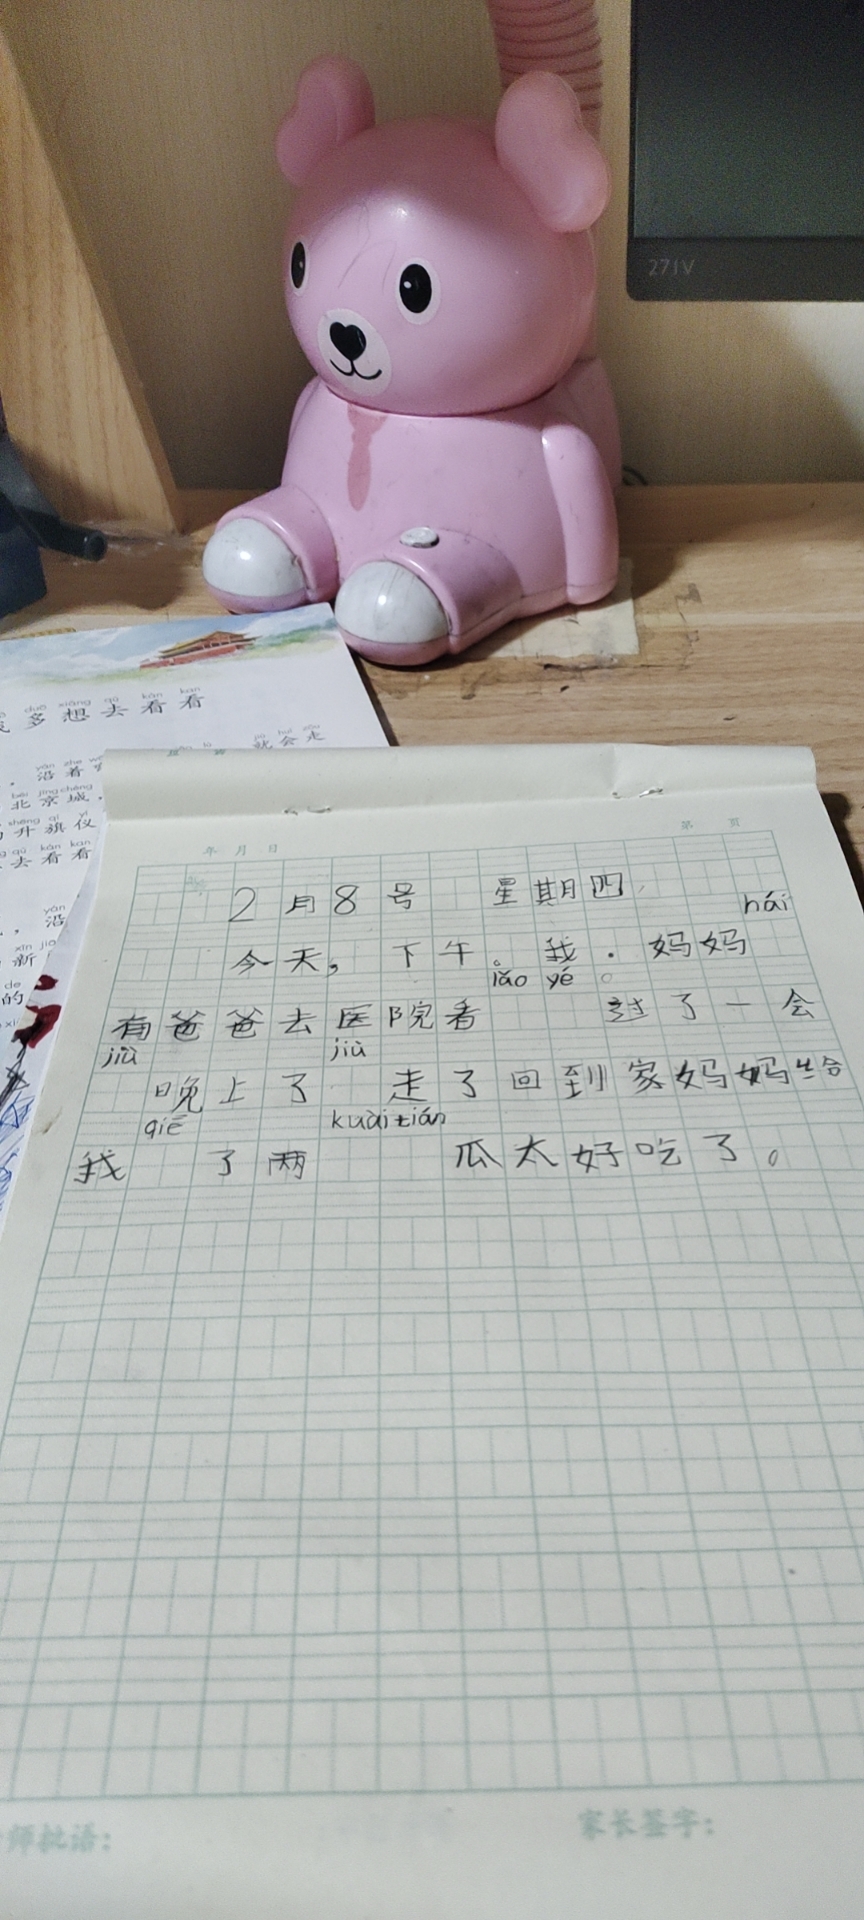 271V
多想去看看
duō xiǎng qù kàn kan
沿着
就会走
jiù huì zǒu
北京城，
běi jīng chéng
升旗仪
shēng qí yí
去看看
qù kàn kan
沿
yán
新
xīn
的
de
年 月 日
第 页
2月8号 星期四
hái
今天，下午。我．妈妈
lǎo yé 。
有爸爸去医院看 过了一会
jiù jiù
晚上了 走了回到家妈妈给
qiē kuài tián
我 了两 瓜太好吃了。
师批语：
家长签字：